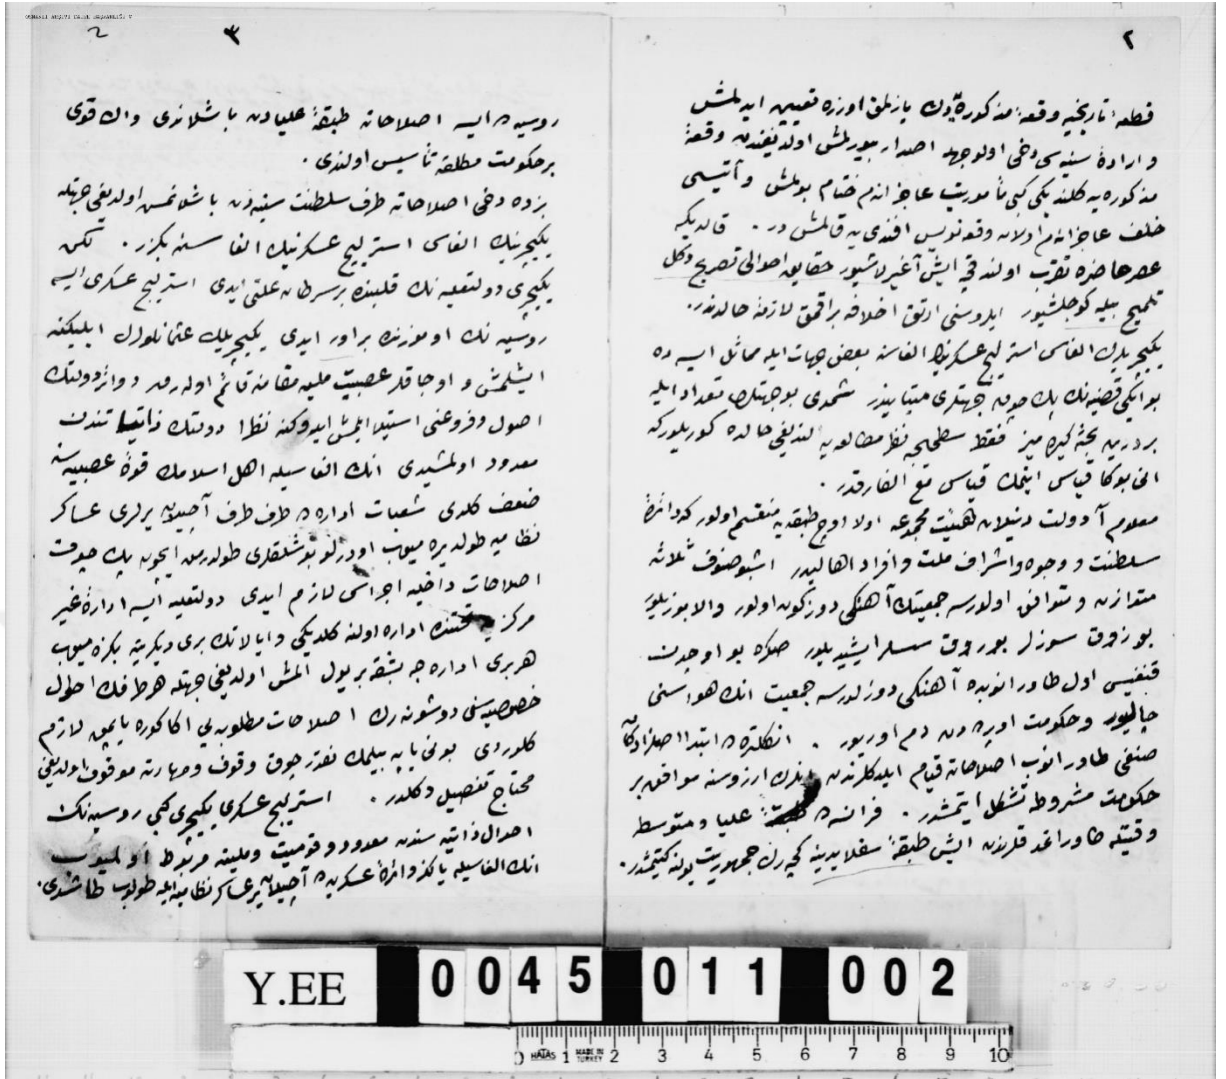 ٢
قطعه تاريخيه وقعهٔ مذكوره‌دك يازلمق اوزره تعيين ايدلمش
و ارادهٔ سنيه سى دخى اولوجهله اصدار بيورلمش اولديغندن وقعهٔ
مذكوره‌يه كلنديكى كبى مأموريت عاجزانه‌م ختام بولمش و آتيسى
خلف عاجزانه‌م اولان وقعه‌نويس افندى‌يه قالمش در . قالديكه
عصر حاضره تقرب اولندقجه ايش آغيرلاشيور حقايق احوالى تصريح دكل
تلميح بيله كوجلشيور ايلروسنى ارتق اخلافه براقمق لازمهٔ حالدندر.
يكيچريلرك الغاسى استرليچ عسكرينك الغاسنه بعض جهات ايله مماثل ايسه ده
بو ايكى قضيه‌نك پك چوق جهتلرى متبايندر شمدى بو جهتلرك تعداد ايله
بر درين بحثه كيره ميز فقط سطحيجه نظر مطالعه‌يه النديغى حالده كوريلور كه
انى بوكا قياس ايتمك قياس مع الفارقدر .
معلوم آ دولت دنيلان هيئت مجموعه اولا اوچ طبقه‌يه منقسم اولور كه دائرهٔ
سلطنت و وجوه و اشراف ملت و افراد اهاليدر اشبو صنوف ثلاثه
متوازن و متوافق اولورسه جمعيتك آهنكى دوزكون اولور والا بوزيلور
بوزوق سوزلر بوزوق سسلر ايشيديلور صكره بو اوچدن
قنغيسى اول طاورانوبده آهنكى دوزلدرسه جمعيت انك هواسنى
چاليور و حكومت اوپره‌دن دم اوريور . انكلتره‌ده ابتدا اصلزادكان
صنفى طاورانوب اصلاحاته قيام ايلدكلرندن انلرك ارزوسنه موافق بر
حكومت مشروطه تشكل ايتمشدر . فرانسه‌ده طبقهٔ عليا و متوسطه
وقتيله طاورانمدقلرندن ايش طبقهٔ سفلايه اينه‌رك جمهوريت يولنه كيتمشدر.
٣
روسيه‌ده ايسه اصلاحاته طبقهٔ عليادن باشلاندى و اك قوى
بر حكومت مطلقه تأسيس اولندى .
بزده دخى اصلاحاته طرف سلطنت سنيه‌دن باشلانمش اولديغى جهتله
يكيچرينك الغاسى استرليچ عسكرينك الغاسنه بكزر . لكن
يكيچرى دولت عليه‌نك قلبنده بر سرطان علتى ايدى استرليچ عسكرى ايسه
روسيه‌نك اوموزنده بر اور ايدى يكيچريلك عثمانلولرك ايليكنه
ايشلمش و اوجاقلر عصبيت مليه مقامنه قائم اوله‌رق دوائر دولتك
اصول و فروعنى استيلا ايلمش ايدوكنه نظرا دولتك ذاتياتندن
معدود اولمشيدى انك الغاسيله اهل اسلامك قوهٔ عصبيه‌سنه
ضعف كلدى شعبات اداره‌ده طرف طرف آچيلان يرلرى عساكر
نظاميه طولديره ميوب اودرلو بوشلقلرى طولدرمق ايچون پك چوق
اصلاحات داخليه اجراسى لازم ايدى دولت عليه ايسه ادارهٔ غير
مركزيه تحتنده اداره اولنه كلديكى و ايالاتك برى ديكرينه بكزه ميوب
هربرى اداره‌جه بشقه بر يول المش اولديغى جهتله هر طرفك احوال
خصوصيه‌سنى دوشونه‌رك اصلاحات مطلوبه‌يى اكا كوره ياپمق لازم
كلوردى بونى ياپه بيلمك نقدر چوق وقوف و مهارته موقوف اولديغى
محتاج تفصيل دكلدر . استرليچ عسكرى يكيچرى كبى روسيه‌نك
احوال ذاتيه سندن معدود و قوميت و مليته مربوط اولميوب
انك الغاسيله يالكز دائرهٔ عسكريه‌ده آچيلان ير عساكر نظاميه ايله طولوب طاشدى.
Y.EE 0045 011 002
0 HATAS 1 MADE IN TURKEY 2 3 4 5 6 7 8 9 10